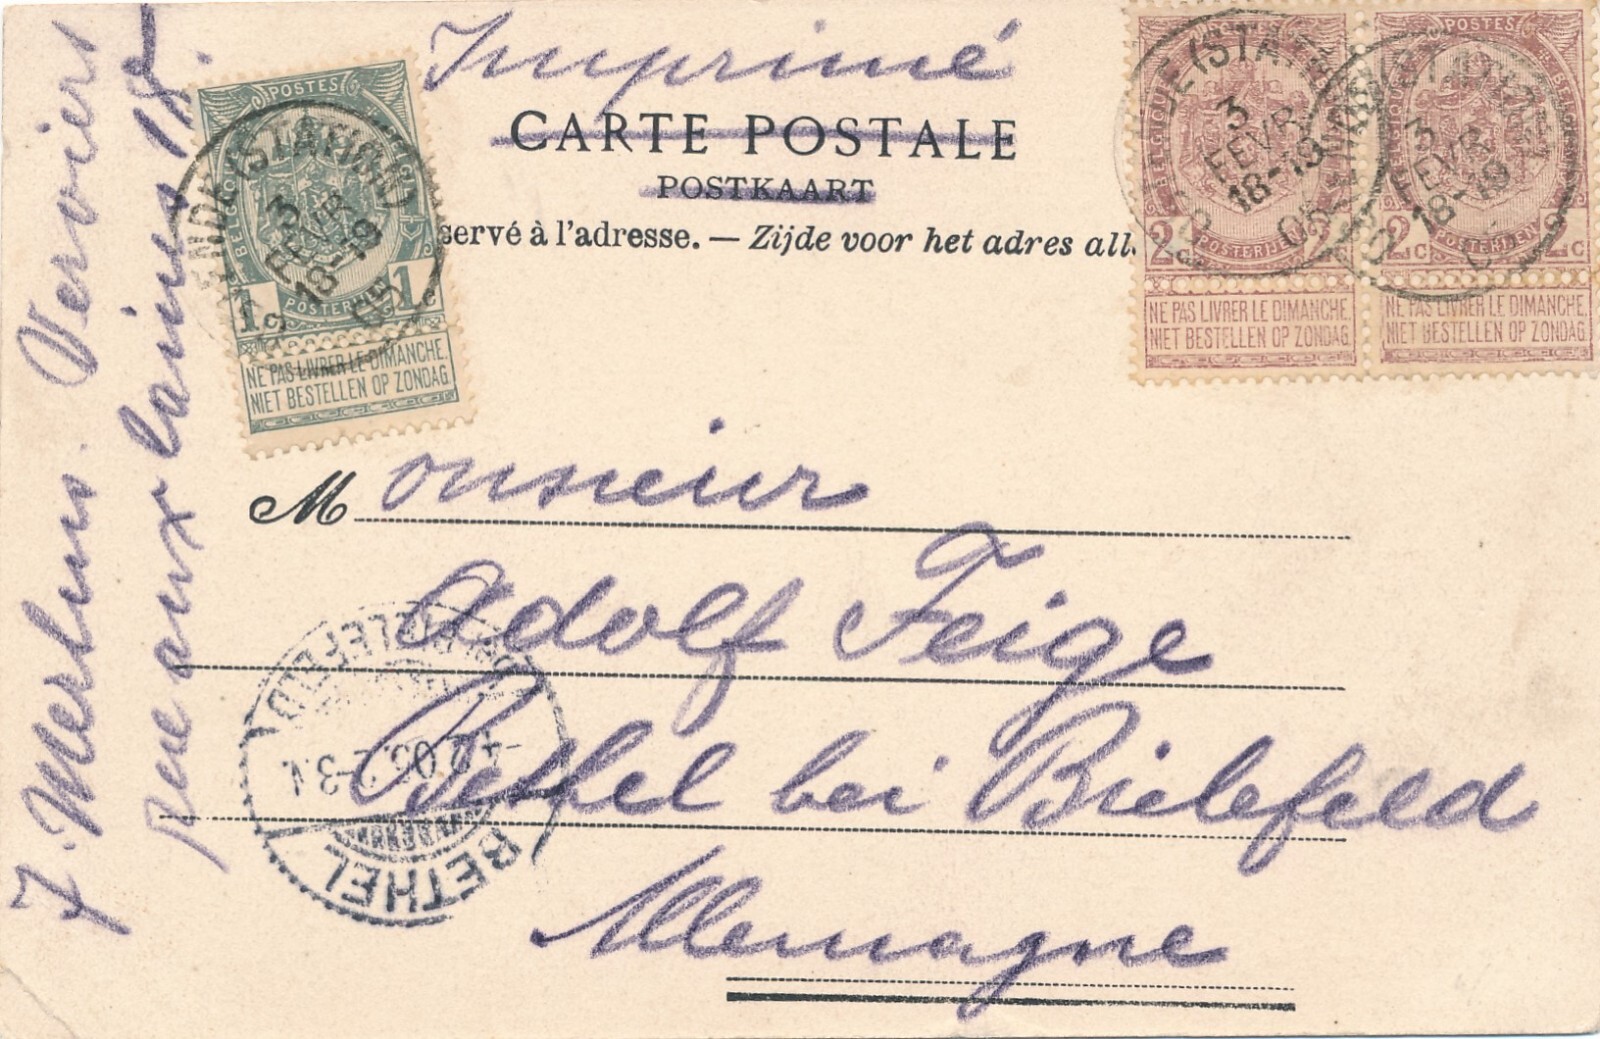 Imprimé
CARTE POSTALE
POSTKAART
servé à l'adresse. — Zijde voor het adres all
POSTES
1c 1c
POSTERIJEN
NE PAS LIVRER LE DIMANCHE
NIET BESTELLEN OP ZONDAG
ENDE (STATION)
3
FEVR
18-19
05
POSTES
BELGIQUE
2c
POSTERIJEN
NE PAS LIVRER LE DIMANCHE
NIET BESTELLEN OP ZONDAG
3
FEVR
18-19
POSTES
BELGIQUE
2c 2c
POSTERIJEN
NE PAS LIVRER LE DIMANCHE
NIET BESTELLEN OP ZONDAG
3
FEVR
18-19
Monsieur
Adolf Feige
Bethel bei Bielefeld
Allemagne
BIELEFELD
BETHEL
Verviers
Rue aux laines 12.